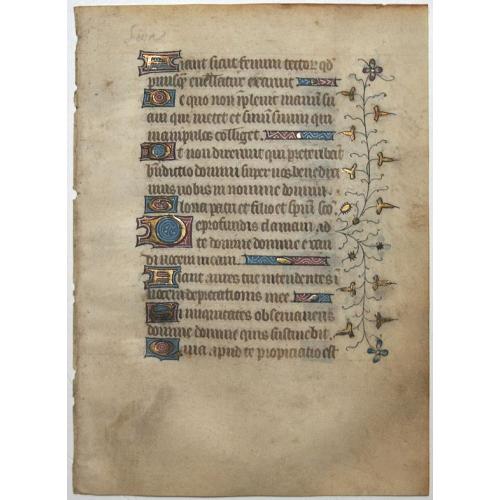 Fiant sicut fenum tectorum qd
priusqm euellatur exaruit
De quo non impleuit manum su
am qui metet et sinum suum qui
manipulos colliget.
Et non dixerunt qui preteribant
benedictio domini super uos benedixi
mus uobis in nomine domini.
Gloria patri et filio et spiritui sco
De profundis clamaui ad
te domine domine exau
di uocem meam.
Fiant aures tue intendentes i
uocem deprecationis mee.
Si iniquitates obseruaueris
domine domine quis sustinebit
Quia apud te propiciatio est